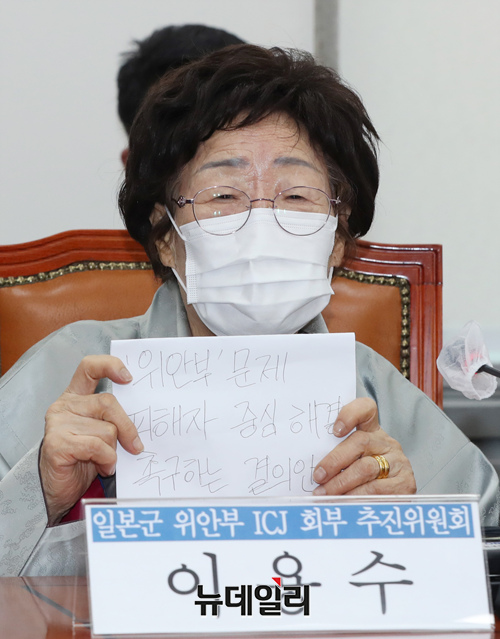 '위안부' 문제
피해자 중심 해결
촉구하는 결의안
일본군 위안부 ICJ 회부 추진위원회
이용수
뉴데일리